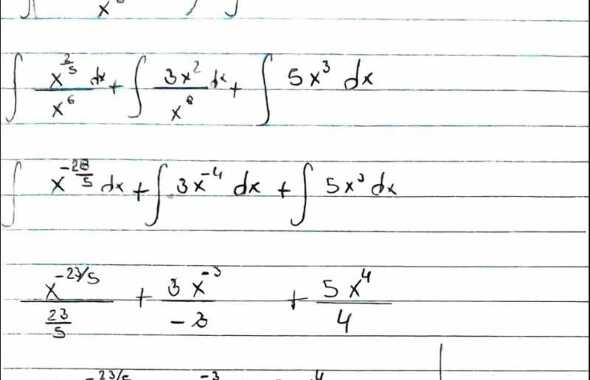 ∫ x^(2/5)/x^6 dx + ∫ 3x^2/x^6 dx + ∫ 5x^3 dx
∫ x^(-28/5) dx + ∫ 3x^-4 dx + ∫ 5x^3 dx
x^(-23/5)/(23/5) + 3x^-3/-3 + 5x^4/4